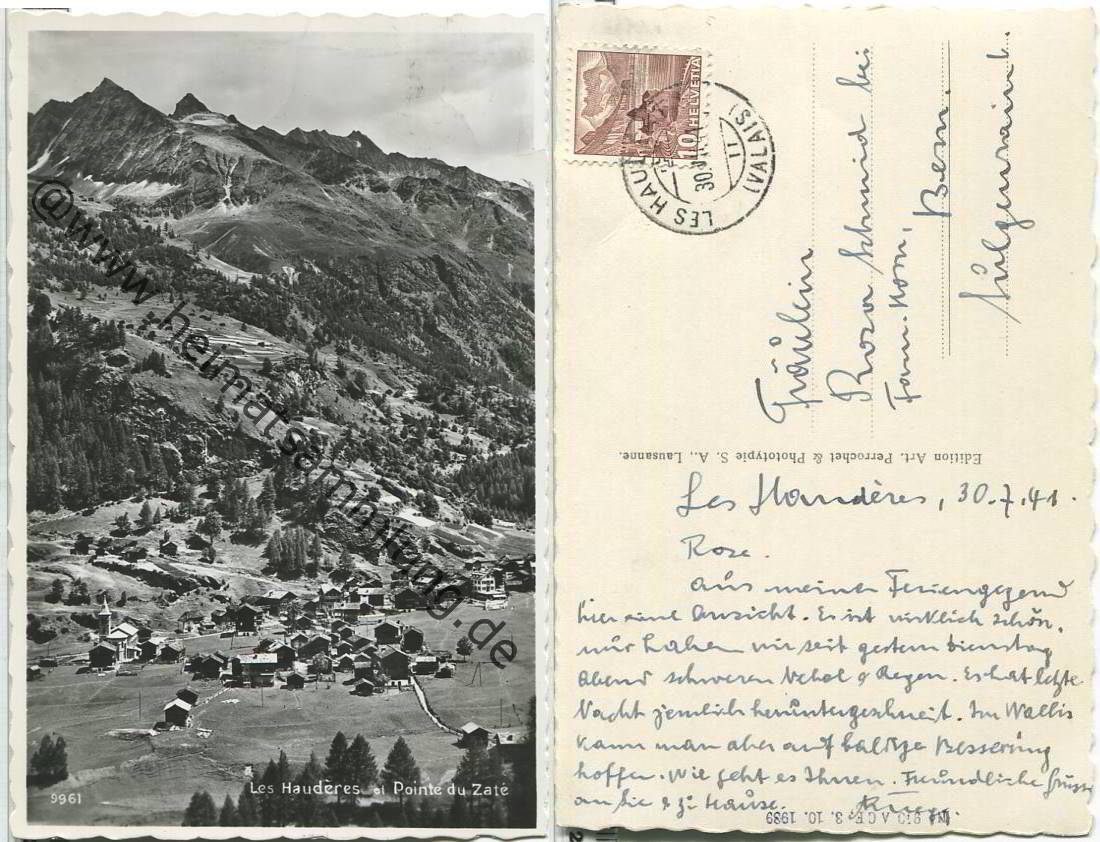 Les Haudères et Pointe du Zaté
9961
@www.heimatsammlung.de
HELVETIA
10
LES HAU
(VALAIS)
30.VII
11
Fräulein
Rosa Schmid bei
Fam. Horn,
Bern.
Sulgenrain
Edition Art. Perrochet & Phototypie S. A., Lausanne.
Les Haudères, 30.7.41.
Rose.
Aus meiner Feriengegend
hier eine Ansicht. Es ist wirklich schön,
nur haben wir seit gestern Dienstag
Abend schweren Nebel & Regen. Es hat letzte
Nacht ziemlich heruntergeschneit. Im Wallis
kann man aber auf baldige Besserung
hoffen. Wie geht es Ihnen. Freundliche Grüsse
an Sie & zu Hause.
3. 10. 1939